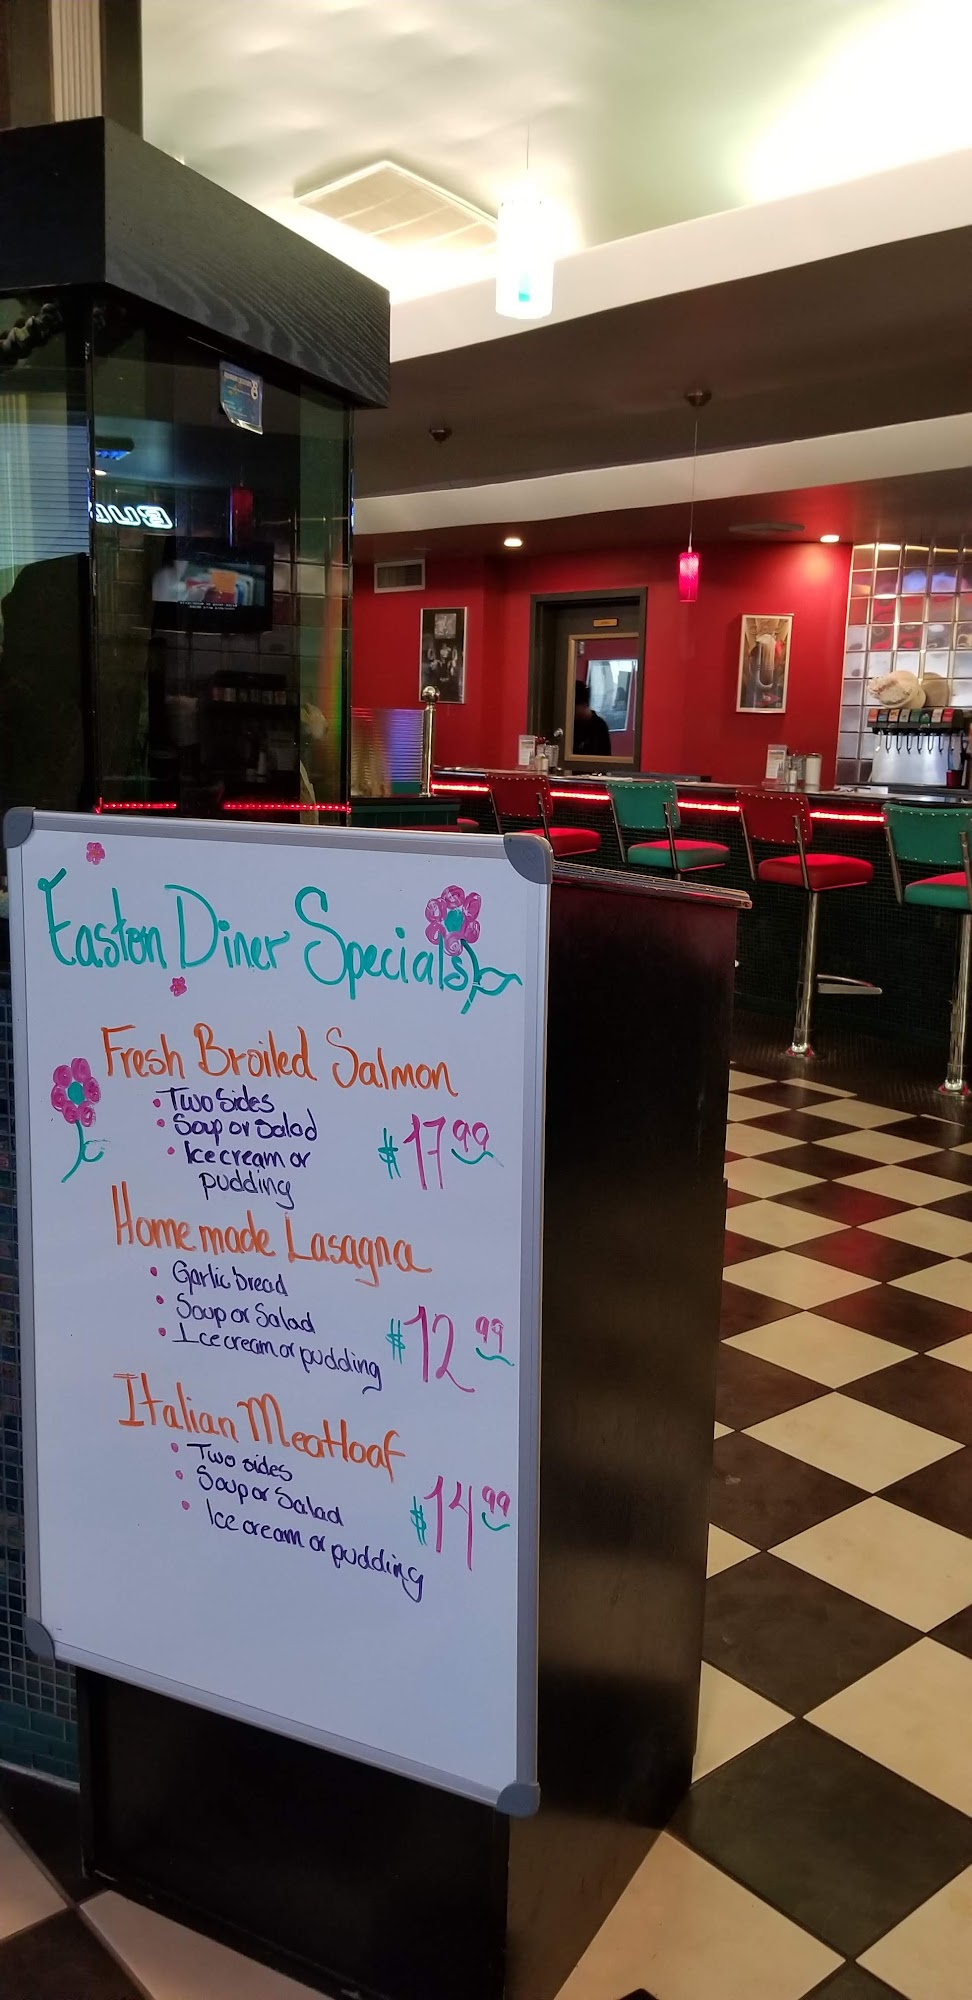 Easton Diner Specials
Fresh Broiled Salmon
• Two Sides
• Soup or Salad
• Ice cream or
pudding
$17.99
Homemade Lasagna
• Garlic bread
• Soup or Salad
• Ice cream or pudding
$12.99
Italian Meatloaf
• Two sides
• Soup or Salad
• Ice cream or pudding
$14.99